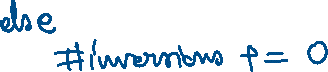 else
#inversions += 0